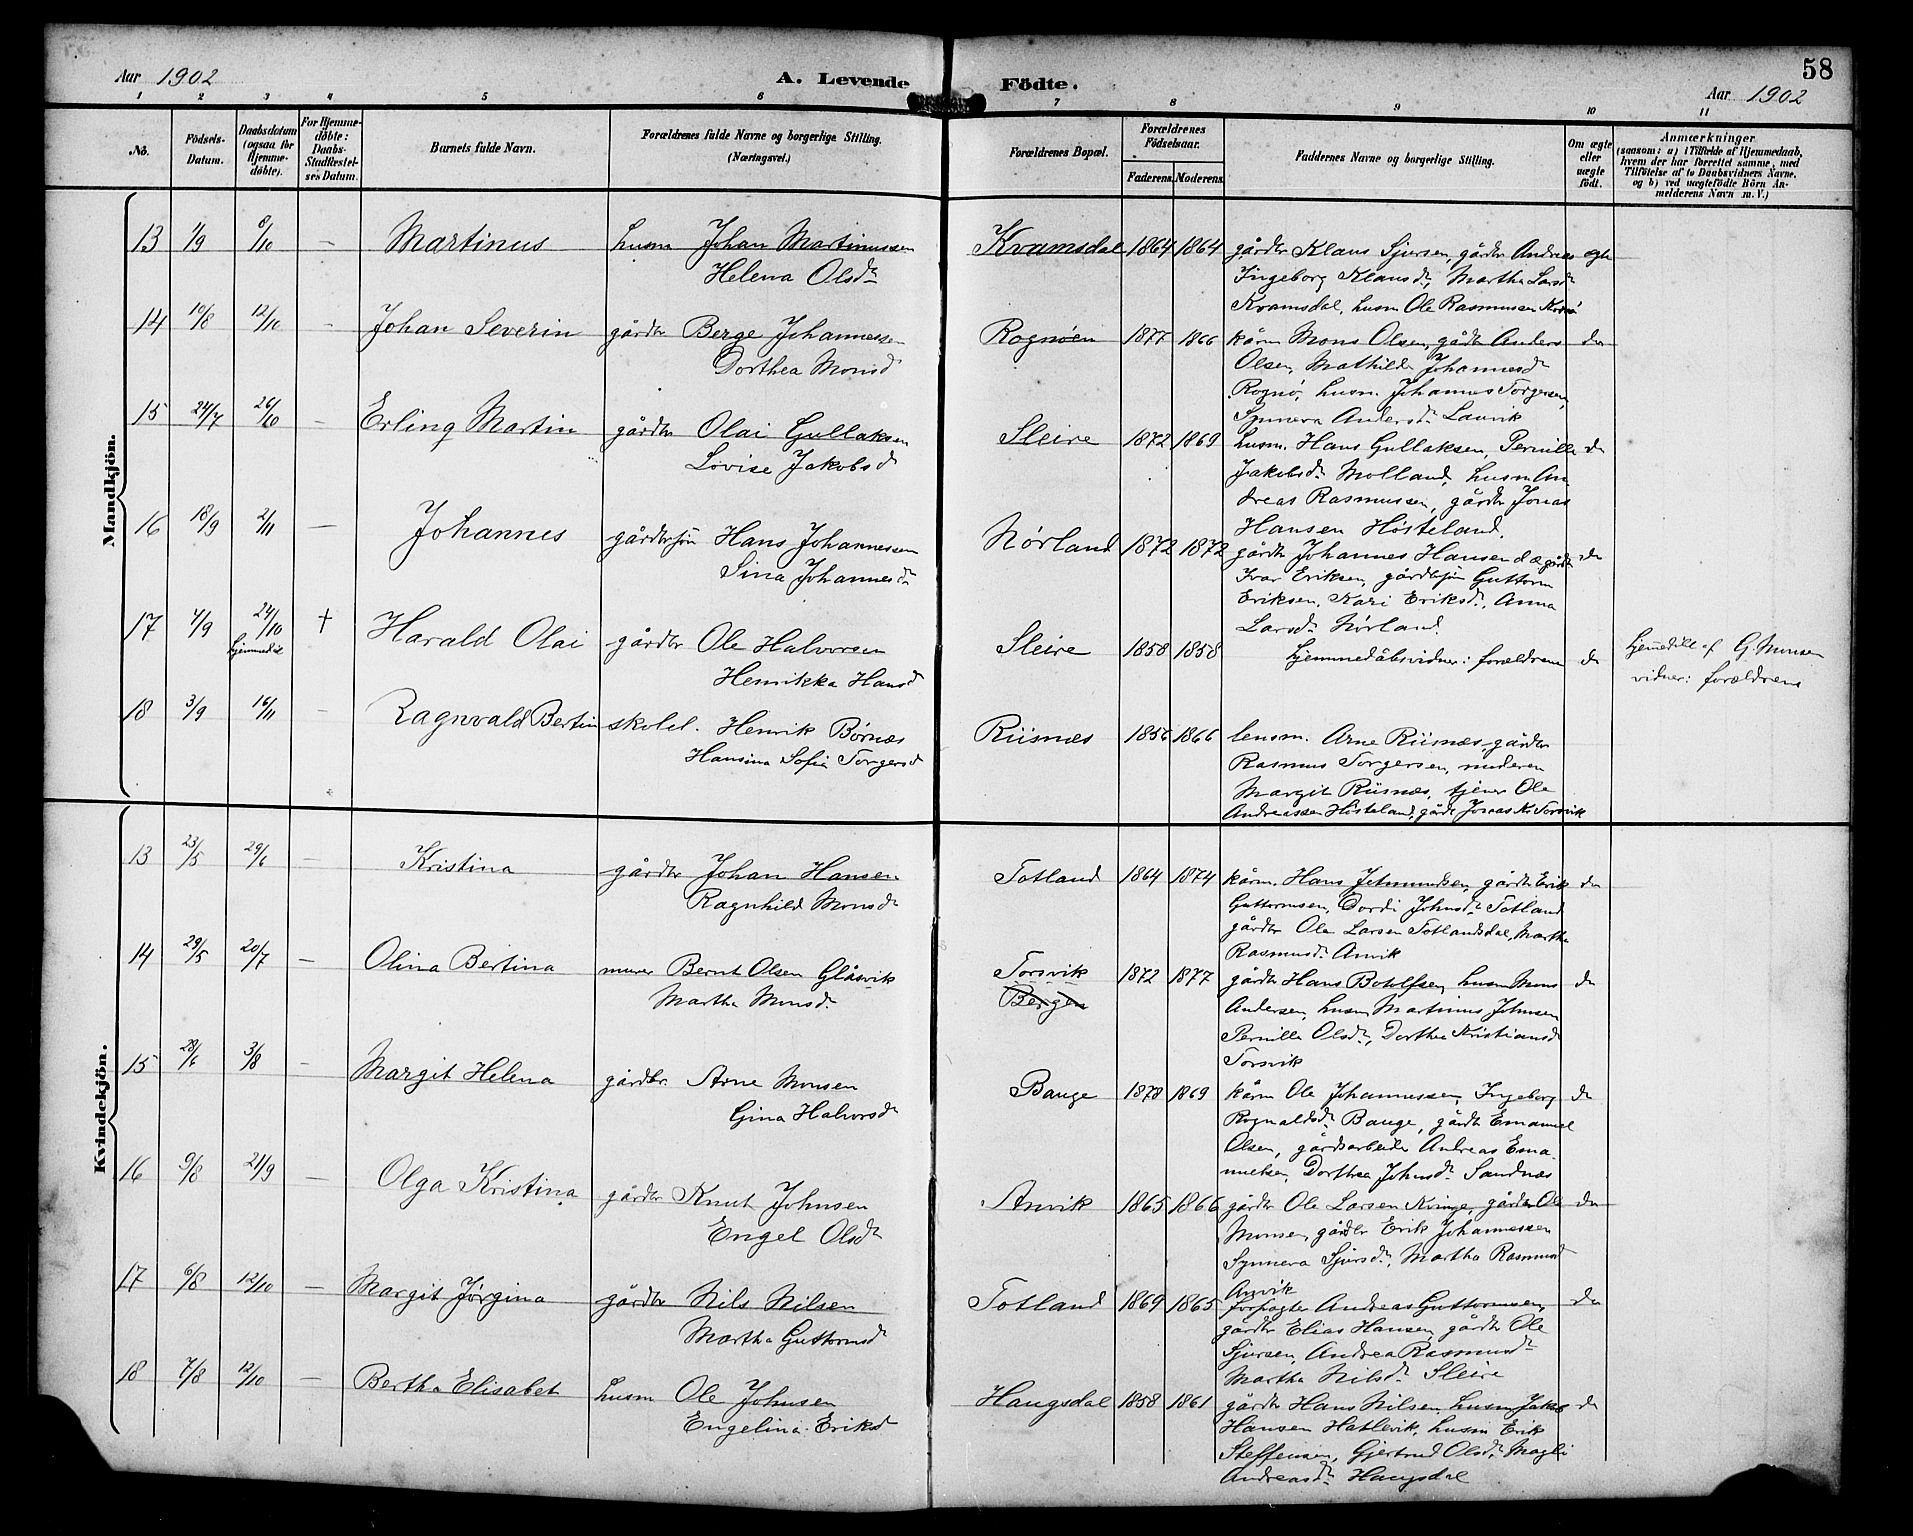 58
Aar 1902
A. Levende
Födte.
Aar 1902
1 2 3 4 5 6 7 8 9 10 11
No.
Födsels-
Datum.
Daabsdatum
(ogsaa for
Hjemme-
döbte).
For Hjemme-
döbte:
Daabs-
Stadfæstel-
ses Datum.
Barnets fulde Navn.
Forældrenes fulde Navne og borgerlige Stilling.
(Næringsvei.)
Forældrenes Bopæl.
Forældrenes
Födselsaar.
Faderens. Moderens.
Faddernes Navne og borgerlige Stilling.
Om ægte
eller
uægte
födt.
Anmærkninger
(saasom: a) i Tilfælde af Hjemmedaab,
hvem der har forrettet samme, med
Tilföielse af to Daabsvidners Navne,
og b) ved uægtefödte Börn An-
melderens Navn m. V.)
Mandkjön.
13 1/9 8/10 — Martinus husm Johan Martinussen
Helena Olsdr
Kvamsdal 1864 1864 gårdbr Klaus Sjursen, gårdbr Andreas ægte
Ingeborg Klausdr, Martha Larsdr
Kvamsdal, husm Ole Rasmussen
14 10/8 12/10 — Johan Severin gårdbr Berge Johannessen
Dorthea Monsd
Rognøen 1877 1866 kårm Mons Olsen, gårdb Anders do
Olsen, Mathilde Johannesdr
Rognø, husm. Johannes Torgersen,
Synneva Andersdr Lauvik
15 24/7 26/10 — Erling Martin gårdbr Olai Gullaksen
Lovise Jakobsd
Sleire 1872 1869 husm. Hans Gullaksen, Pernille do
Jakobsdr Molland, husm An
dreas Rasmussen, gårdbr Jonas
Hansen Høsteland.
16 18/9 2/11 — Johannes gårdbrsøn Hans Johannessen
Sina Johannesdr
Nørland 1872 1872 gårdbr Johannes Hansen d æ gårdbr do
Ivar Eriksen, gårdbrsøn Guttorm
Eriksen, Kari Eriksdr, Anna
Larsdr Nørland.
17 4/9 24/10 † Harald Olai gårdbr Ole Halvorsen
Henrikka Hansd
Sleire 1858 1858 hjemmedåbsvidner: forældrene do hjemmedøbt af G. Monsen
vidner: forældrene
18 3/9 16/11 — Ragnvald Bertin skolel. Henrik Børnæs
Hansina Sofia Torgersd
Riisnæs 1856 1866 lensm. Arne Riisnæs, gårdbr
Rasmus Torgersen, moderen
Margit Riisnæs, tjener Ole
Andreassen Høsteland, gårdb Jonas K. Torsvik
Kvindekjön.
13 23/5 29/6 — Kristina gårdbr Johan Hansen
Ragnhild Monsdr
Totland 1864 1874 kårm. Hans Jetmundsen, gårdbr Erik do
Guttormsen, Dordi Johnsdr Totland
gårdbr Ole Larsen Totlandsdal, Martha
Rasmusdr Anvik
14 29/5 20/7 — Olina Bertina murer Bernt Olsen Glåsvik
Martha Monsdr
Torsvik
Bergen
1872 1877 gårdbr Hans Botolfsen, husm Mons do
Andersen, husm Martinus Johnsen
Pernille Olsdr, Dorthea Kristiansdr
Torsvik
15 28/6 3/8 — Margit Helena gårdbr. Arne Monsen
Gina Halvorsdr
Bauge 1878 1869 kårm Ole Johannessen, Ingeborg do
Rognaldsdr Bauge, gårdbr Emanuel
Olsen, gårdsarbeider Andreas Ema-
nuelsen, Dorthea Johnsdr Sandnæs
16 9/8 21/9 — Olga Kristina gårdbr Knut Johnsen
Engel Olsdr
Anvik 1865 1866 gårdbr Ole Larsen Kvinge, gårdbr Ole do
Monsen, gårdbr Erik Johannessen
Synneva Sjursdr, Martha Rasmusd
Anvik
17 6/8 12/10 — Margit Jørgina gårdbr Nils Nilsen
Martha Guttormsd
Totland 1869 1865 forpagter Andreas Guttormsen, do
gårdbr Elias Hansen, gårdbr Ole
Sjursen, Andrea Rasmusdr
Martha Nilsdr Sleire
18 7/8 12/10 — Bertha Elisabet husm Ole Johnsen
Engelina Eriksd
Haugsdal 1858 1861 gårdbr Hans Nilsen, husm Jakob do
Hansen Hatlevik, husm Erik
Steffensen, Gjertrud Olsdr, Magli
Andreasdr Haugsdal